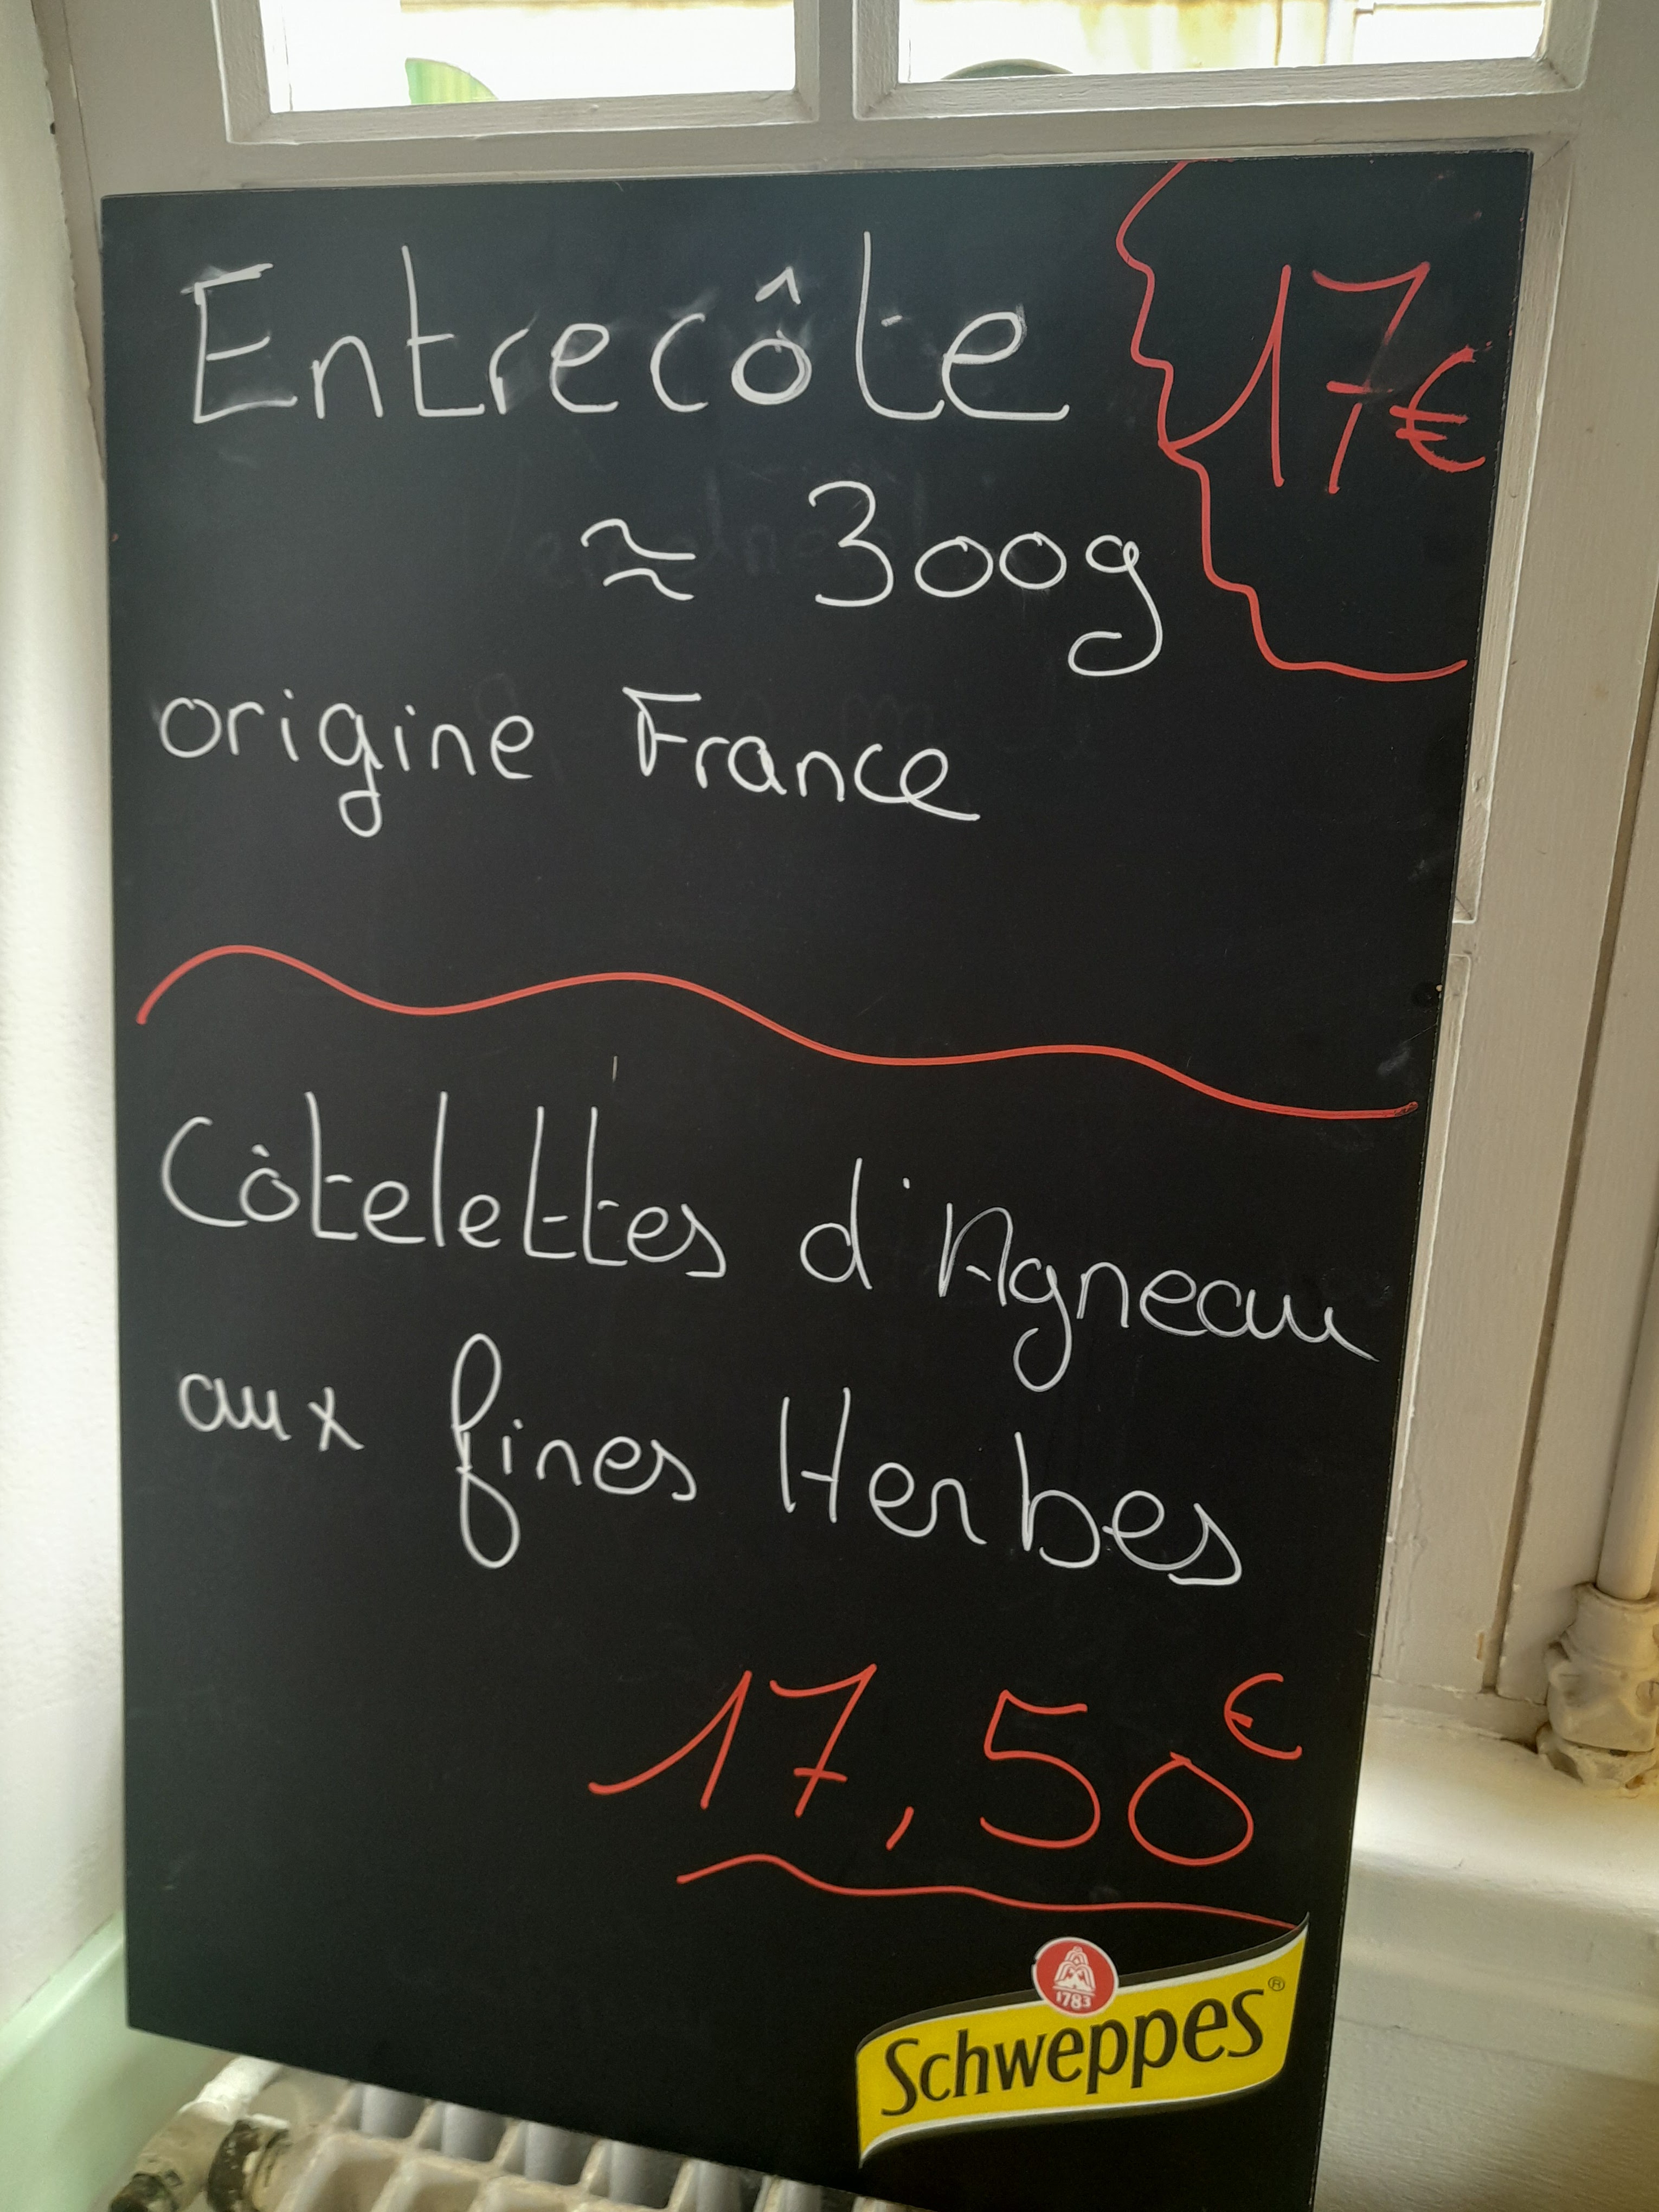 Entrecôte 17€
≈ 300g
origine France
Côtelettes d'Agneau
aux fines Herbes
17,50€
1783
Schweppes®